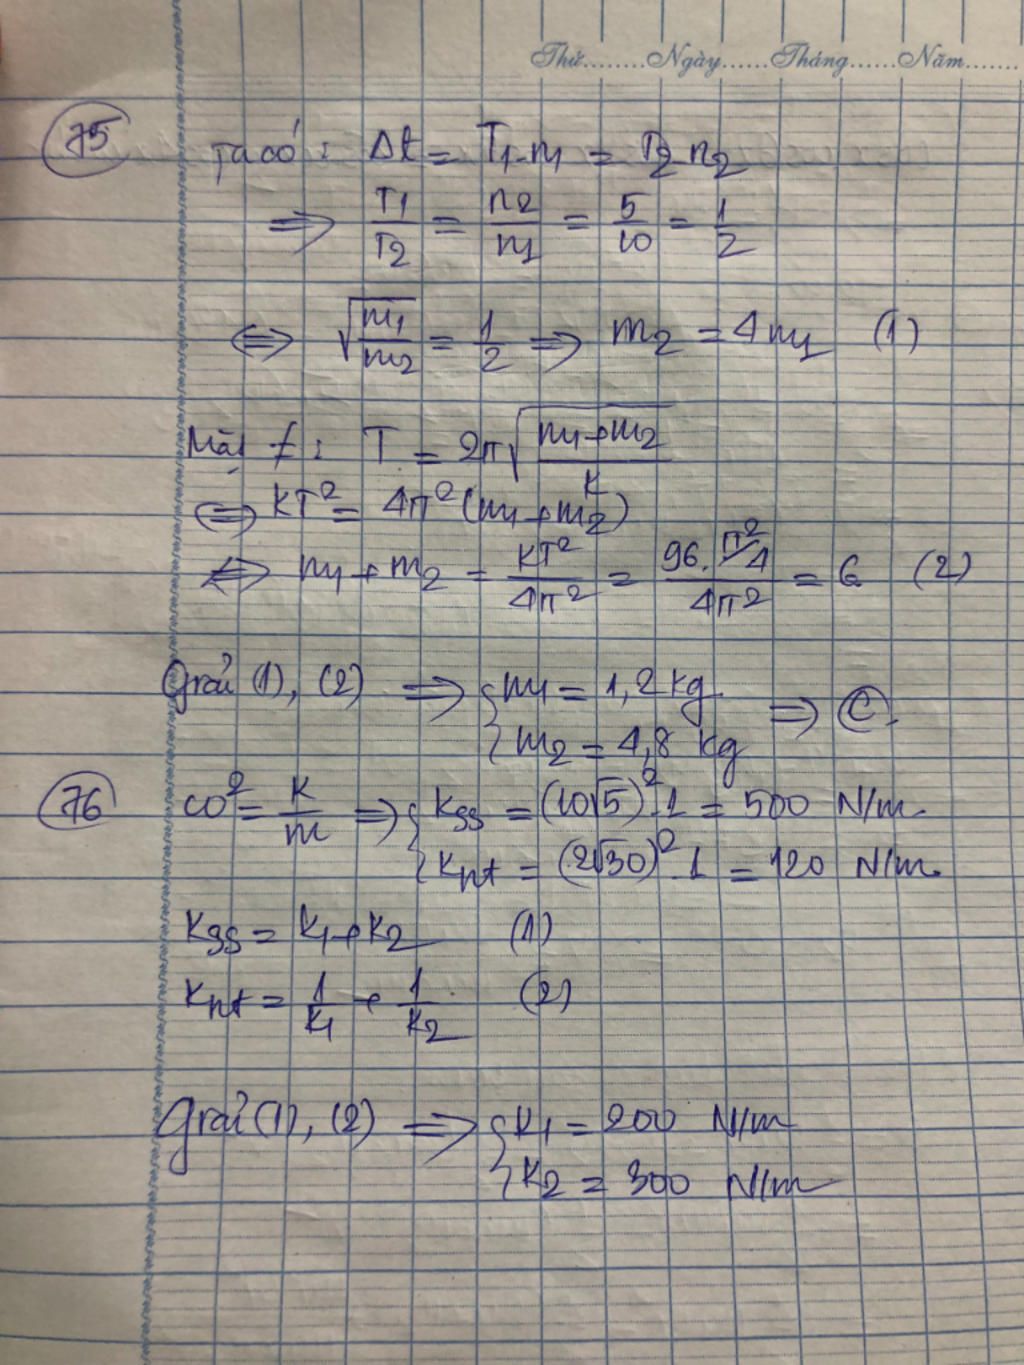 Thứ........Ngày......Tháng......Năm.......
75
Ta có : Δt = T₁.n₁ = T₂.n₂
⇒ T₁/T₂ = n₂/n₁ = 5/10 = 1/2
⇔ √(m₁/m₂) = 1/2 ⇒ m₂ = 4m₁ (1)
Mặt ≠ : T = 2π√((m₁+m₂)/K)
⇔ KT² = 4π²(m₁+m₂)
⇔ m₁+m₂ = KT²/4π² = (96.π²/4)/4π² = 6 (2)
Giải (1), (2) ⇒ { m₁ = 1,2 kg
m₂ = 4,8 kg ⇒ C.
76
ω² = K/m ⇒ { Kss = (10√5)².1 = 500 N/m.
Knt = (2√30)².1 = 120 N/m.
Kss = K₁+K₂ (1)
Knt = 1/K₁ + 1/K₂ (2)
Giải (1), (2) ⇒ { K₁ = 200 N/m
K₂ = 300 N/m